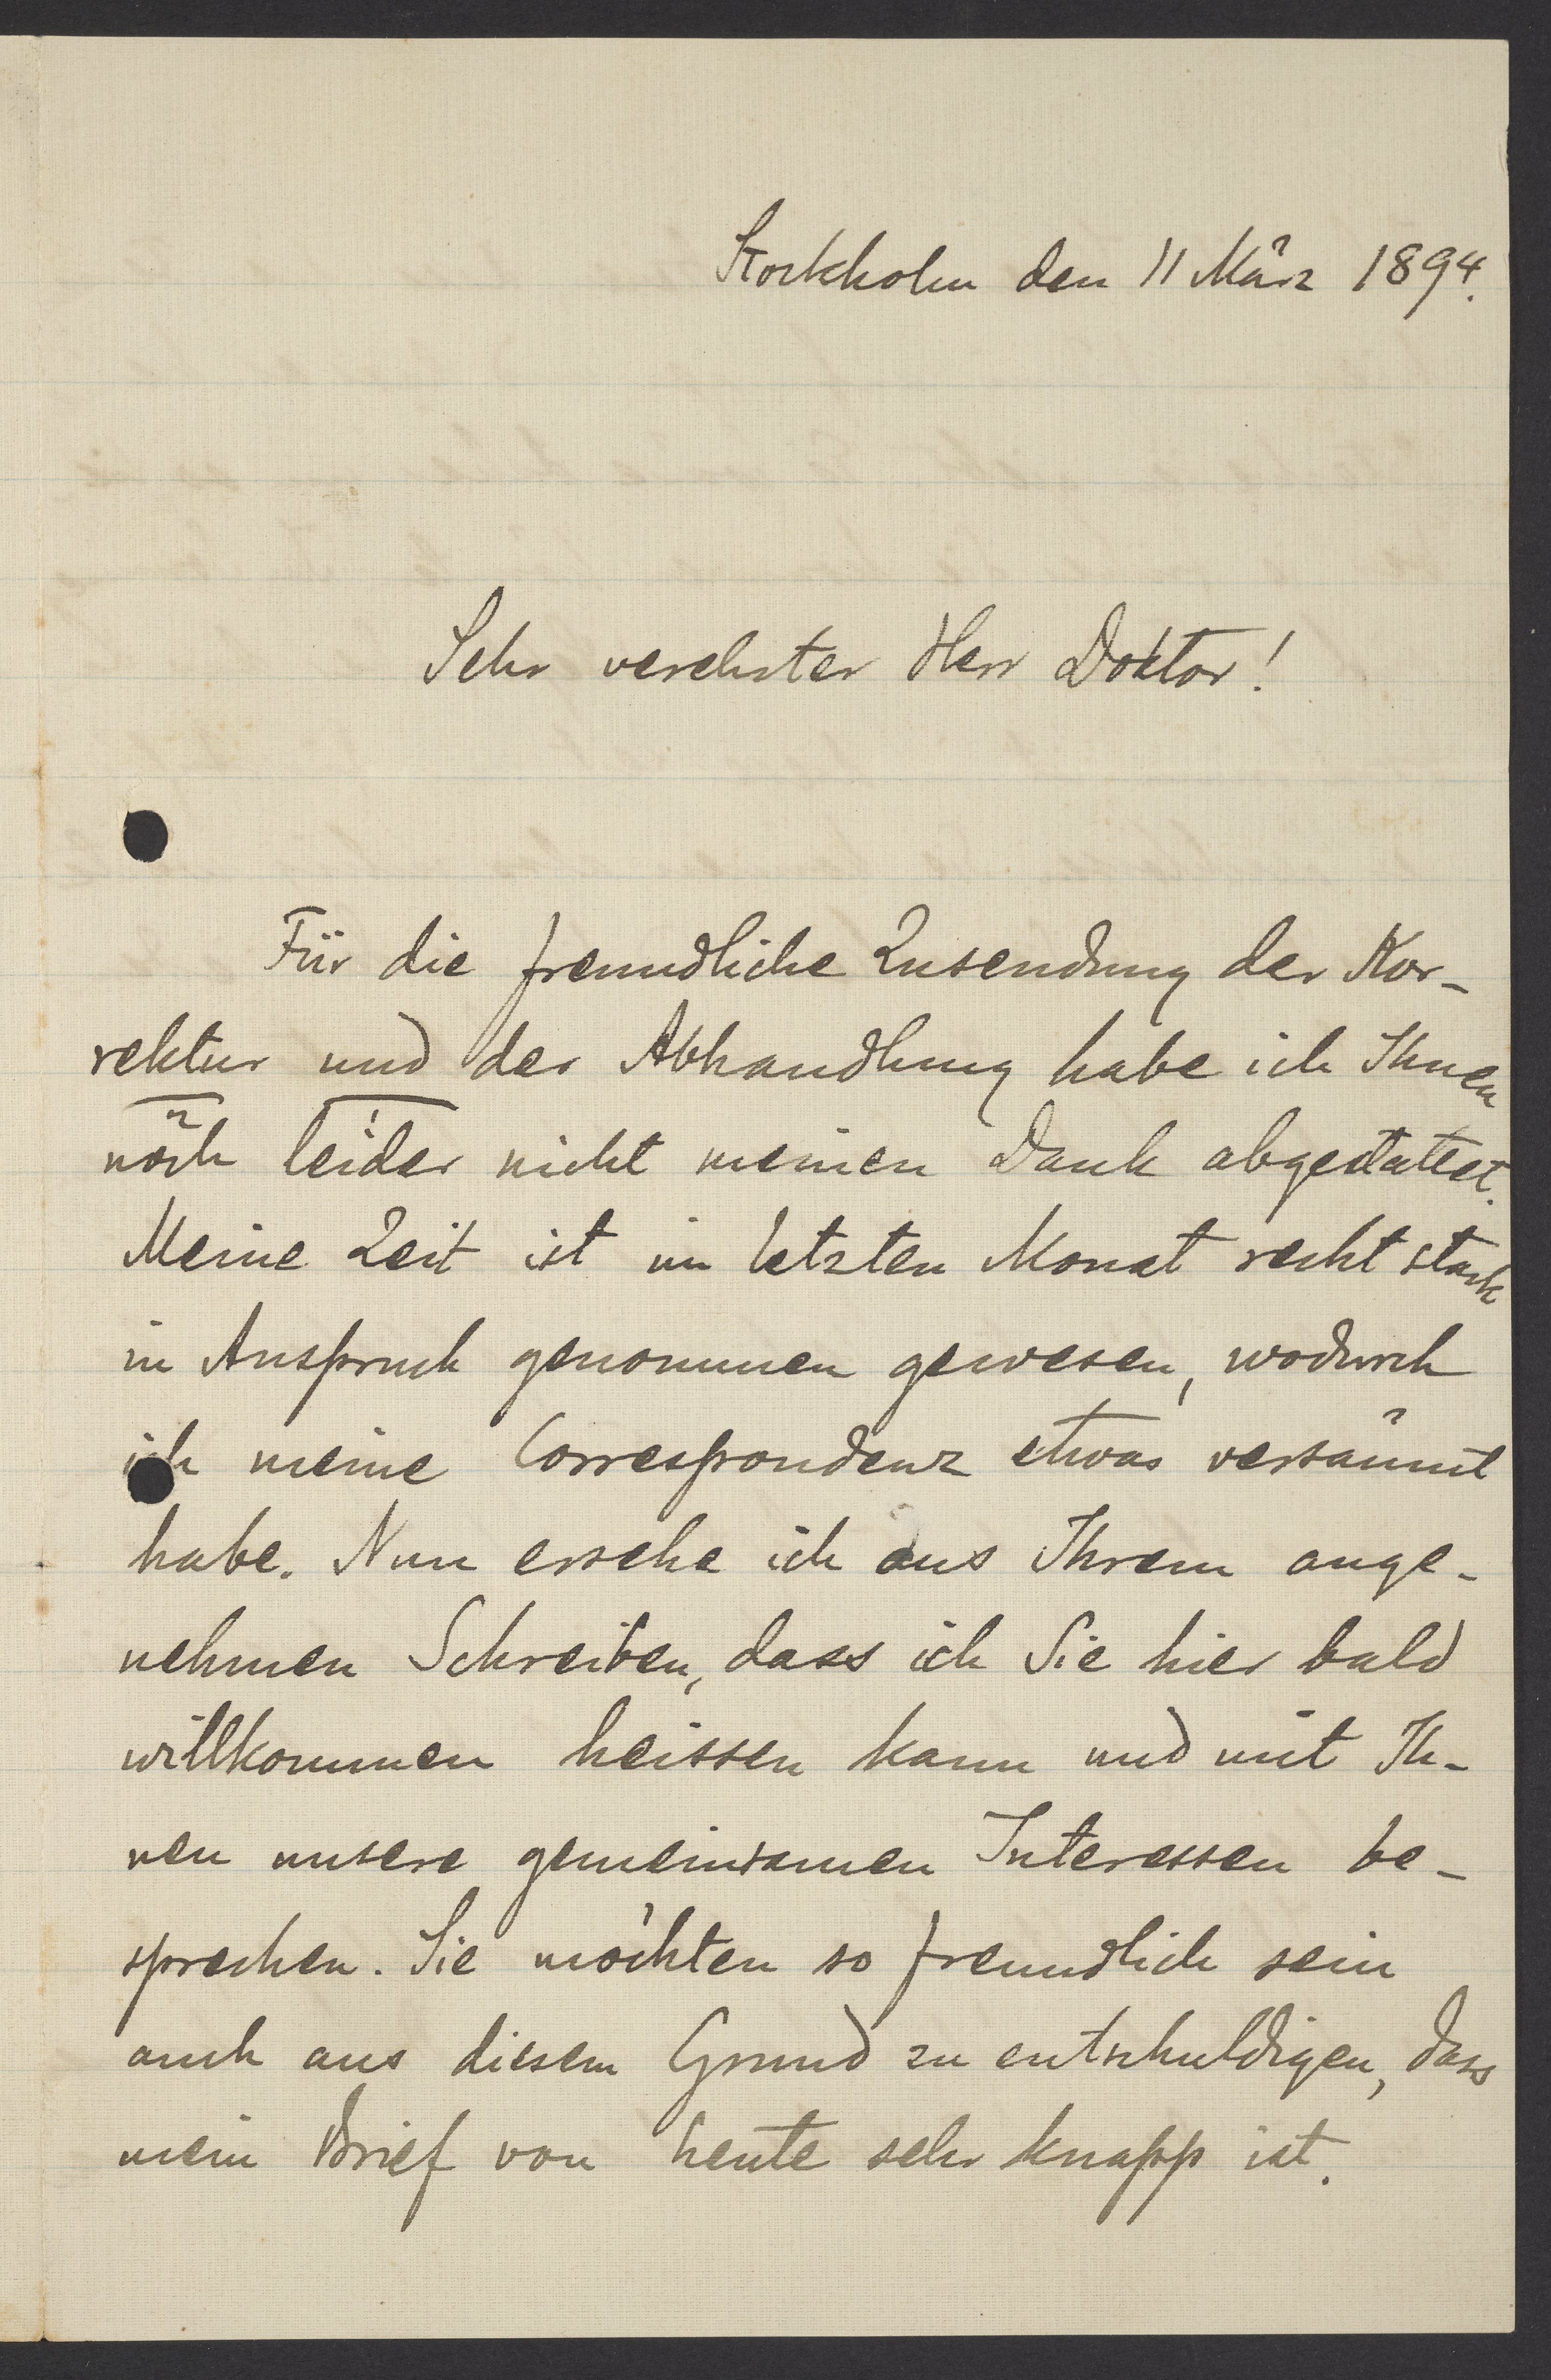 Stockholm den 11 März 1894.
Sehr verehrter Herr Doktor!
Für die freundliche Zusendung der Kor-
rektur und der Abhandlung habe ich Ihnen
noch leider nicht meinen Dank abgestattet.
Meine Zeit ist im letzten Monat recht stark
in Anspruch genommen gewesen, wodurch
ich meine Correspondenz etwas versäumt
habe. Nun ersehe ich aus Ihrem ange-
nehmen Schreiben, dass ich Sie hier bald
willkommen heissen kann und mit Ih-
nen unsere gemeinsamen Interessen be-
sprechen. Sie möchten so freundlich sein
auch aus diesem Grund zu entschuldigen, dass
mein Brief von heute sehr knapp ist.